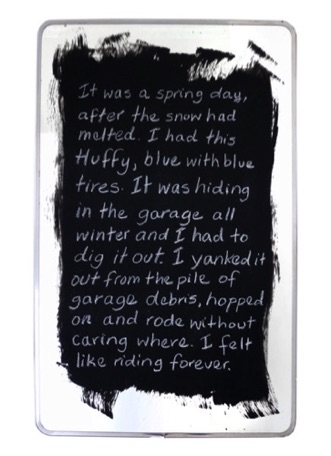 It was a spring day,
after the snow had
melted. I had this
Huffy, blue with blue
tires. It was hiding
in the garage all
winter and I had to
dig it out. I yanked it
out from the pile of
garage debris, hopped
on and rode without
caring where. I felt
like riding forever.